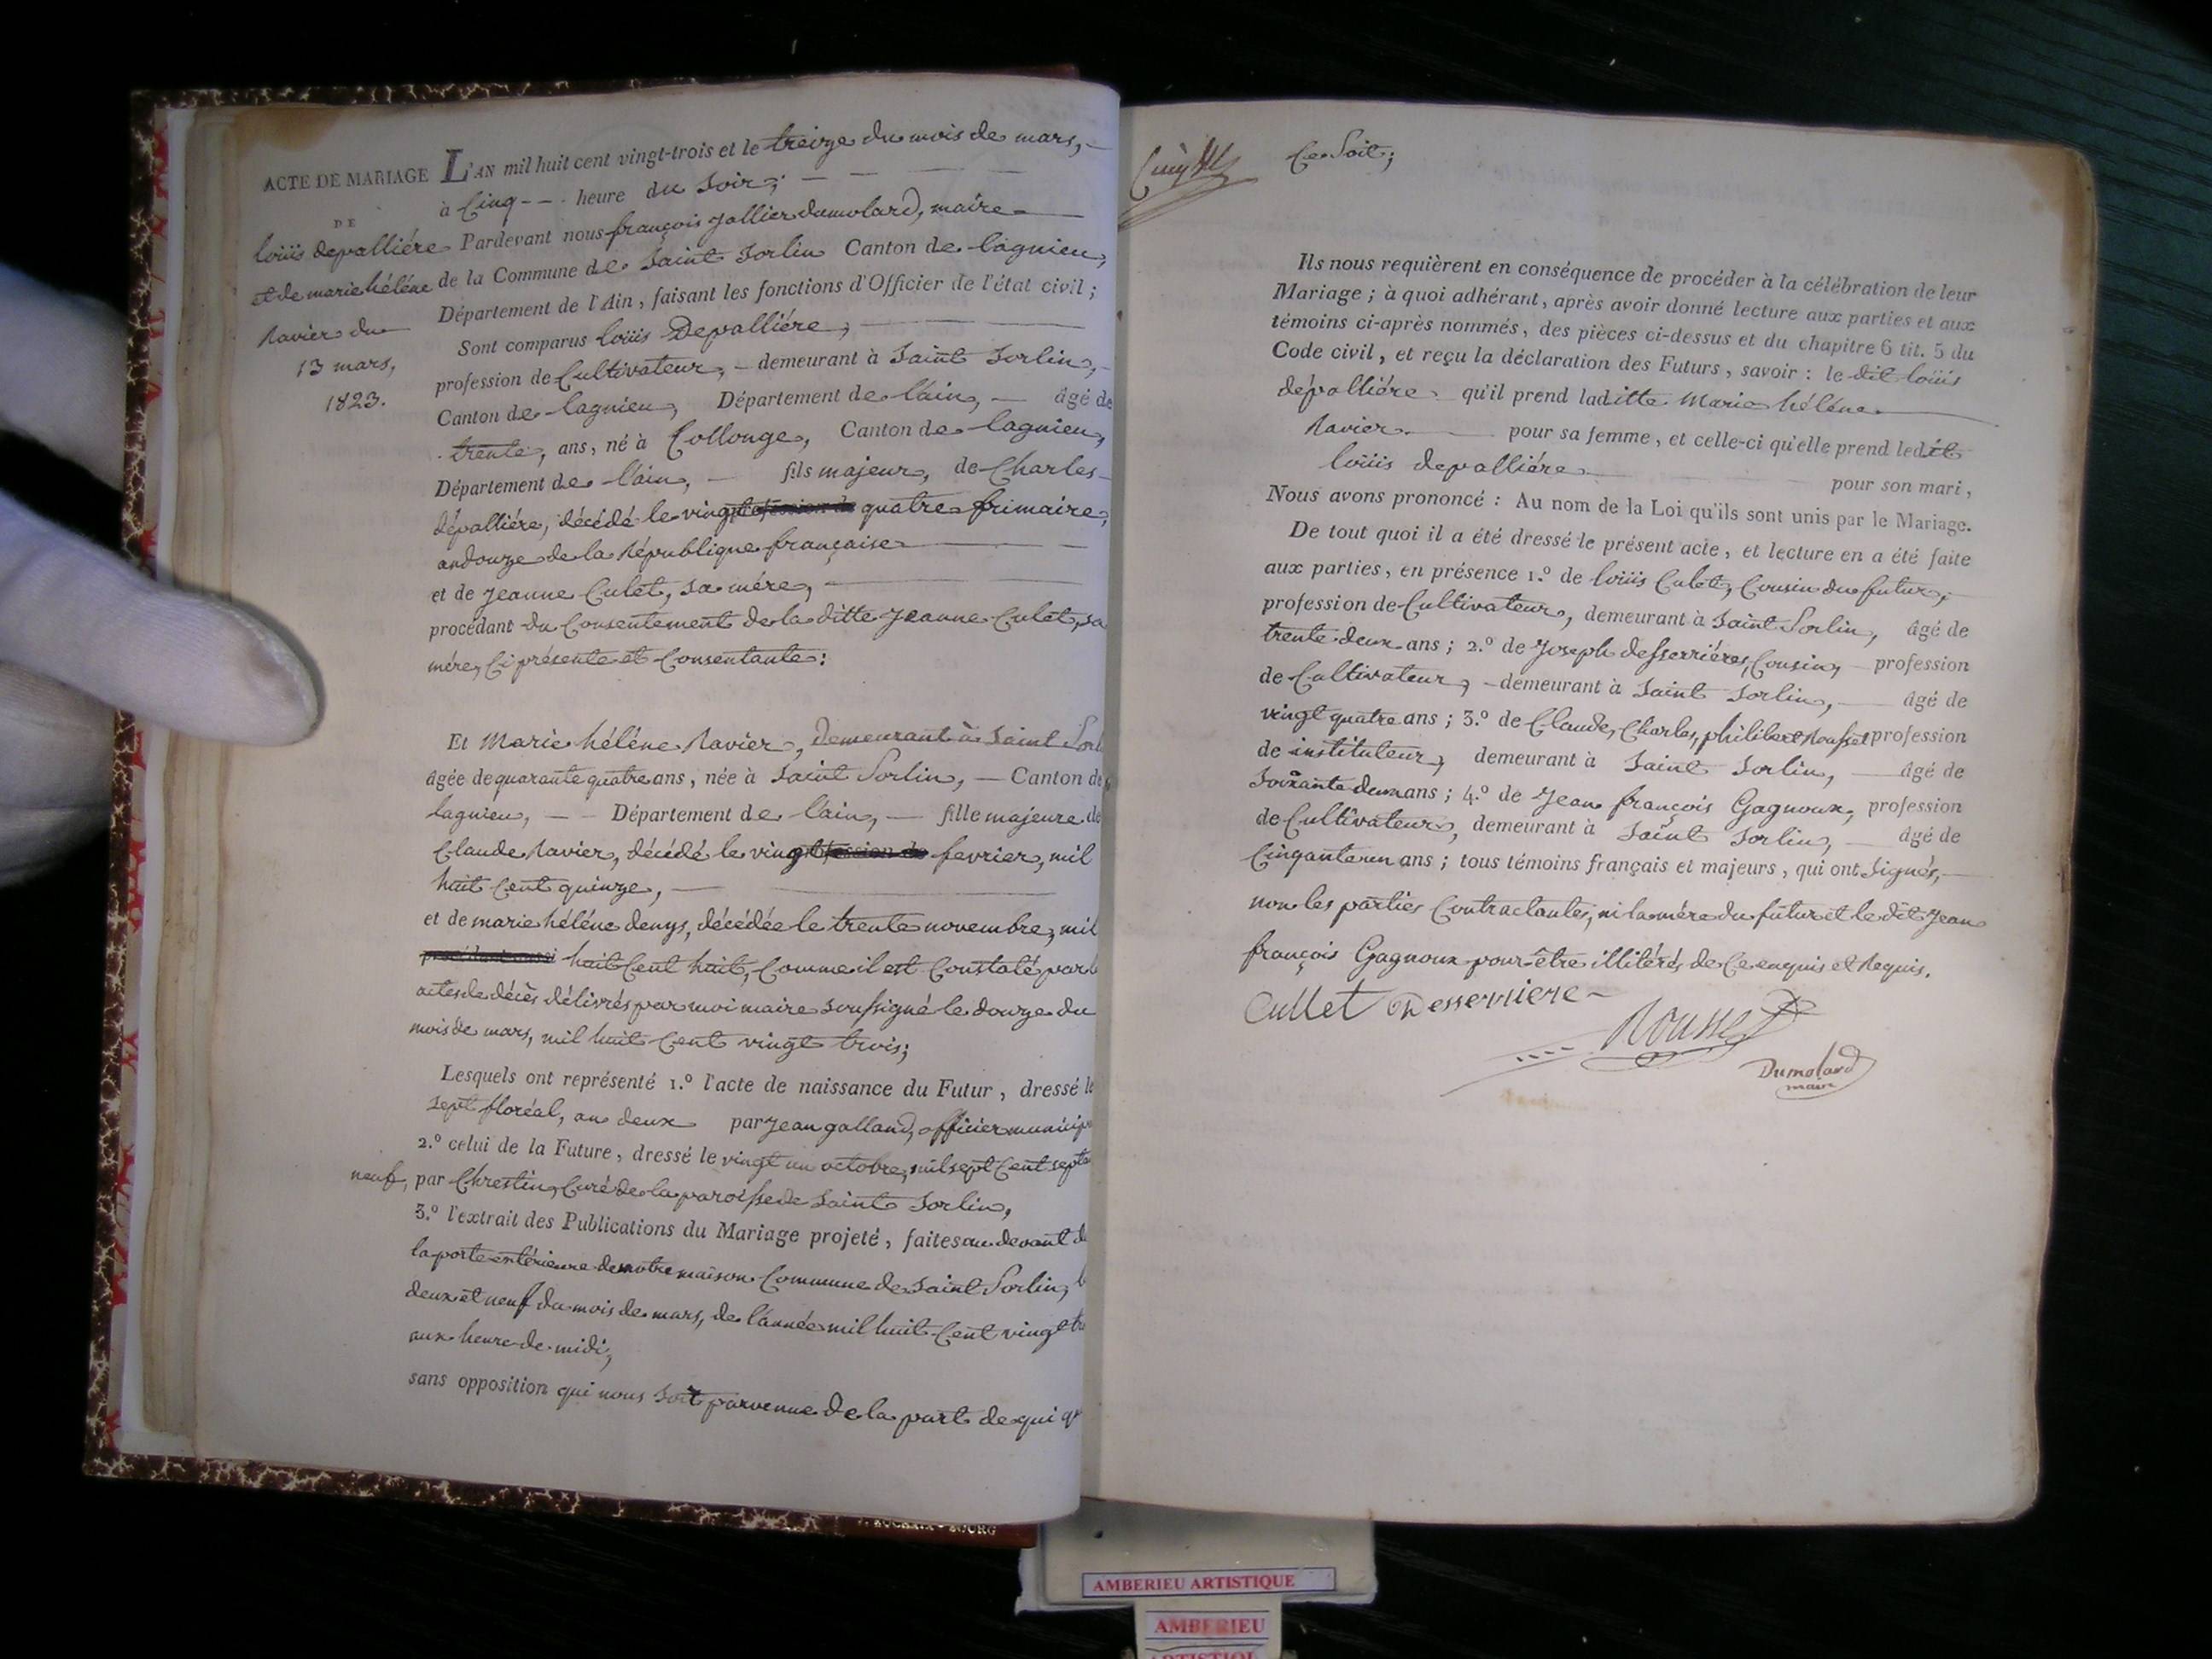 ACTE DE MARIAGE
DE
loüis depalliére
et de marie héléne
Ravier du
13 mars,
1823.
L'AN mil huit cent vingt-trois et le treize du mois de mars,
à Cinq heure du Soir;
Pardevant nous françois Jallier dumolard, maire
de la Commune de Saint Sorlin Canton de lagnieu,
Département de l'Ain, faisant les fonctions d'Officier de l'état civil;
Sont comparus loüis Depalliére,
profession de Cultivateur, demeurant à Saint Sorlin,
Canton de lagnieu, Département de lain, âgé de
trente, ans, né à Collonge, Canton de lagnieu,
Département de lain, fils majeur, de Charles
dépalliére, décédé le vingt quatre frimaire,
an douze de la République française
et de jeanne Culet, sa mére,
procédant du Consentement de la ditte jeanne Culet, sa
mére, Ci présente et Consentante:
Et Marie héléne Ravier, demeurant à Saint Sorl
âgée de quarante quatre ans, née à Saint Sorlin, Canton de
lagnieu, Département de lain, fille majeure de
Claude Ravier, décédé le vingt fevrier, mil
huit Cent quinze,
et de marie héléne denys, décédée le trente novembre, mil
huit Cent huit, Comme il est Constaté par
actes de décès délivrés par moi maire soussigné le douze du
mois de mars, mil huit Cent vingt trois;
Lesquels ont représenté 1.º l'acte de naissance du Futur, dressé le
sept floréal, an deux par jean galland, officier municip
2.º celui de la Future, dressé le vingt un octobre, mil sept Cent septe
neuf, par Chrestin, Curé de la paroisse de Saint Sorlin,
3.º l'extrait des Publications du Mariage projeté, faites au devant de
la porte extérieure de notre maison Commune de Saint Sorlin, l
deux et neuf du mois de mars, de l'année mil huit Cent vingt tr
aux heure de midi,
sans opposition qui nous soit parvenue de la part de qui q
Ce Soit;
Ils nous requièrent en conséquence de procéder à la célébration de leur
Mariage; à quoi adhérant, après avoir donné lecture aux parties et aux
témoins ci-après nommés, des pièces ci-dessus et du chapitre 6 tit. 5 du
Code civil, et reçu la déclaration des Futurs, savoir: le dit loüis
dépalliére qu'il prend laditte Marie héléne
Ravier pour sa femme, et celle-ci qu'elle prend ledit
loüis depalliére pour son mari,
Nous avons prononcé: Au nom de la Loi qu'ils sont unis par le Mariage.
De tout quoi il a été dressé le présent acte, et lecture en a été faite
aux parties, en présence 1.º de loüis Culet, Cousin du futur,
profession de Cultivateur, demeurant à Saint Sorlin, âgé de
trente deux ans; 2.º de joseph desserriéres, Cousin, profession
de Cultivateur, demeurant à Saint Sorlin, âgé de
vingt quatre ans; 3.º de Claude, Charles, philibert Rousset profession
de instituteur, demeurant à Saint Sorlin, âgé de
Soixante deux ans; 4.º de jean françois Gagnoux, profession
de Cultivateur, demeurant à Saint Sorlin, âgé de
Cinquante un ans; tous témoins français et majeurs, qui ont signés,
non les parties Contractantes, ni la mére du futur et le dit jean
françois Gagnoux pour être illitérés de Ce enquis et Requis.
Cullet Desserriere
Rousset
Dumolard
maire
AMBERIEU ARTISTIQUE
AMBERIEU
ARTISTIQUE